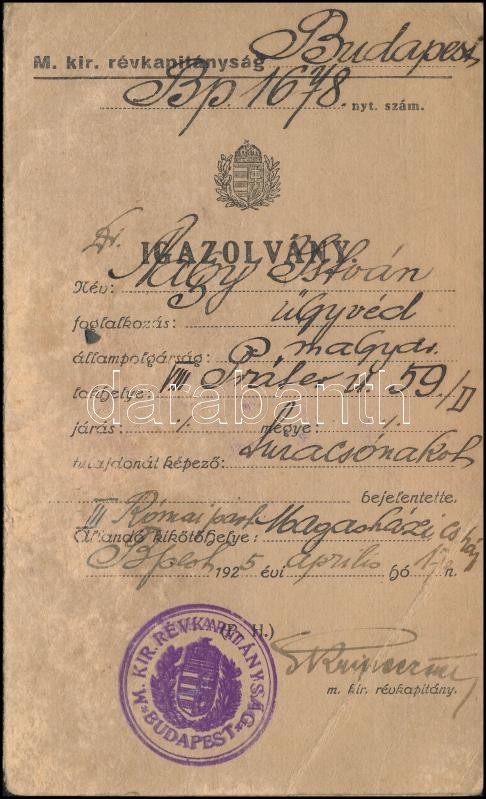 M. kir. révkapitányság Budapest
Bp. 16 /78. nyt. szám.
IGAZOLVÁNY.
Név: Dr. Nagy István
foglalkozás: ügyvéd
állampolgárság: magyar
lakhelye: VIII Práter u. 59/II
járás: /. megye: /.
tulajdonát képező: Luracsónakot
bejelentette.
III Római part Magasházi cs ház
Állandó kikötőhelye:
Bp 1925 évi április hó 17 n.
(P. H.)
m. kir. révkapitány.
M. KIR. RÉVKAPITÁNYSÁG
*BUDAPEST*
darabanth